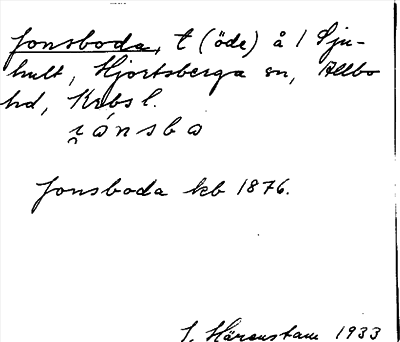 Jonsboda, t (öde) å 1 Sju-
hult, Hjortsberga sn, Allbo
hd, Krbs l.
i̯ónsbo
Jonsboda kb 1876.
S. Härenstam 1933